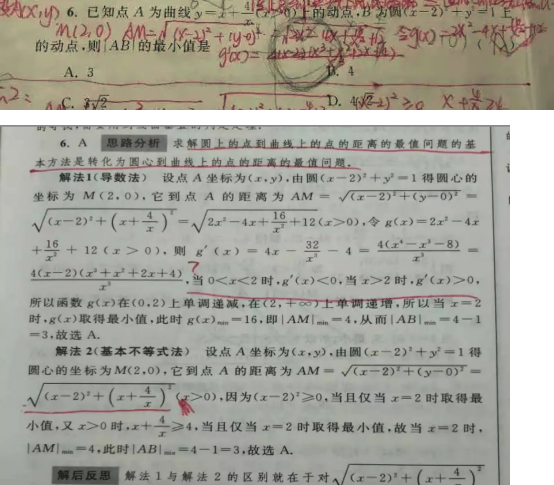 6. 已知点 A 为曲线 y=x+4/x(x>0)上的动点,B 为圆(x-2)²+y²=1上
M(2,0) AM=√(x-2)²+(y-0)²
的动点,则|AB|的最小值是
A. 3 B. 4
C. 3√2 D. 4√2
6. A 思路分析 求解圆上的点到曲线上的点的距离的最值问题的基
本方法是转化为圆心到曲线上的点的距离的最值问题.
解法1(导数法) 设点 A 坐标为(x,y),由圆(x-2)²+y²=1 得圆心的
坐标为 M(2,0),它到点 A 的距离为 AM=√(x-2)²+(y-0)²=
√(x-2)²+(x+4/x)²=√2x²-4x+16/x²+12(x>0),令 g(x)=2x²-4x
+16/x²+12(x>0),则 g′(x)=4x-32/x³-4=4(x⁴-x³-8)/x³=
4(x-2)(x³+x²+2x+4)/x³,当 0<x<2 时,g′(x)<0,当 x>2 时,g′(x)>0,
所以函数 g(x)在(0,2)上单调递减,在(2,+∞)上单调递增,所以当 x=2
时,g(x)取得最小值,此时 g(x)min=16,即|AM|min=4,从而|AB|min=4-1
=3,故选 A.
解法 2(基本不等式法) 设点 A 坐标为(x,y),由圆(x-2)²+y²=1 得
圆心的坐标为 M(2,0),它到点 A 的距离为 AM=√(x-2)²+(y-0)²=
√(x-2)²+(x+4/x)²(x>0),因为(x-2)²≥0,当且仅当 x=2 时取得最
小值,又 x>0 时,x+4/x≥4,当且仅当 x=2 时取得最小值,故当 x=2 时,
|AM|min=4,此时|AB|min=4-1=3,故选 A.
解后反思 解法 1 与解法 2 的区别就在于对√(x-2)²+(x+4/x)²